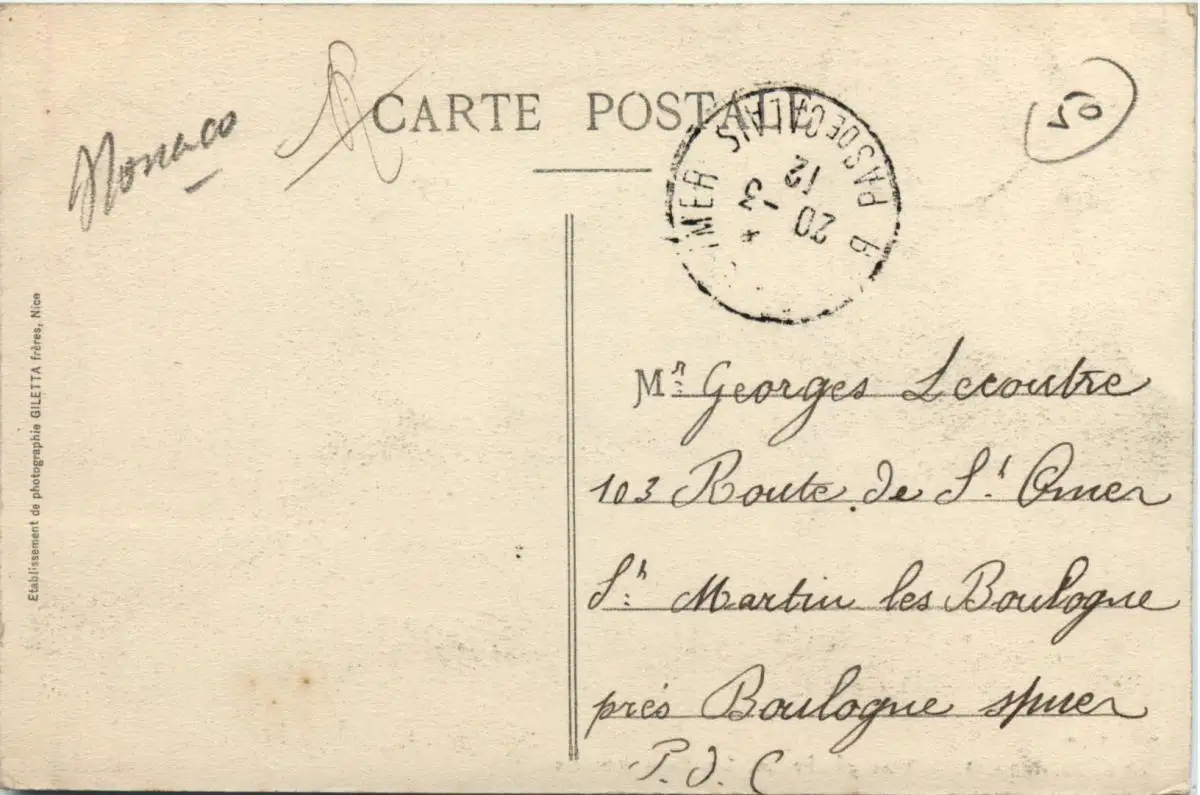 Monaco
CARTE POSTALE
50
PAS DE CALAIS
MER
20 -3
12
Etablissement de photographie GILETTA frères, Nice
Mr: Georges Lecoutre
103 Route de St. Omer
St: Martin les Boulogne
près Boulogne s/mer
P. d. C